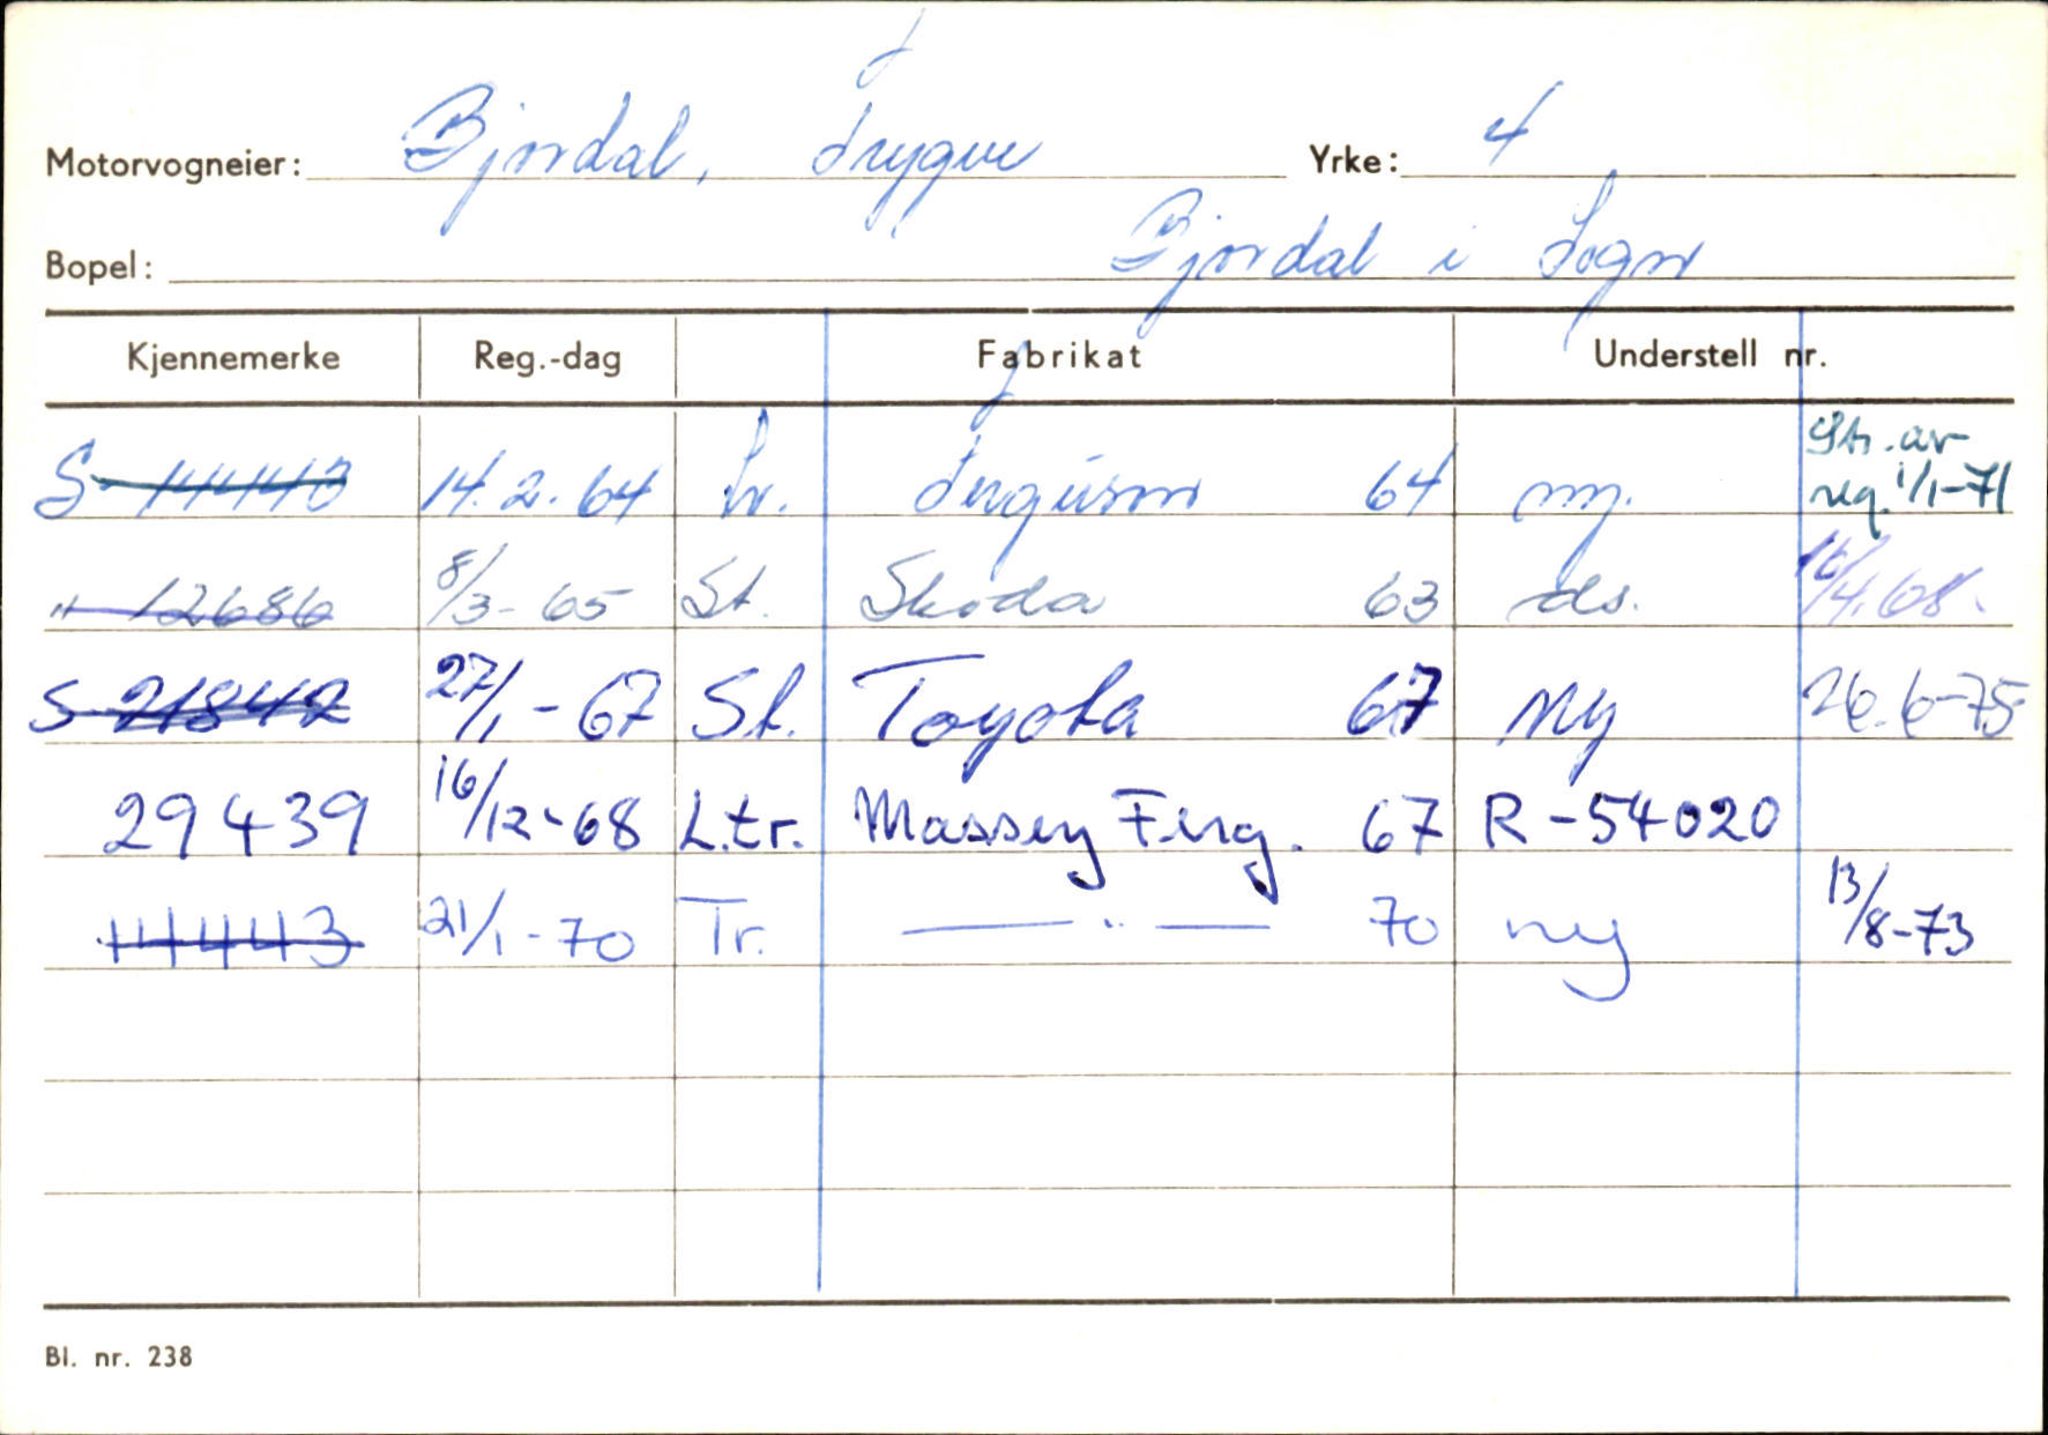 Motorvogneier: Bjordal, Trygve Yrke: 4
Bopel: Bjordal i Sogn
Kjennemerke Reg.-dag Fabrikat Understell nr.
S- 14.2.64 tr. Ferguson 64 ny. Str. av reg. 1/1-71
" 12686 8/3-65 St. Skoda 63 ds. 16/4.68.
S 21842 27/1-67 St. Toyota 67 Ny 26.6-75
29439 16/12-68 L.tr. Massey Ferg. 67 R-54020
11443 21/1-70 Tr. — " — 70 ny 13/8-73
Bl. nr. 238